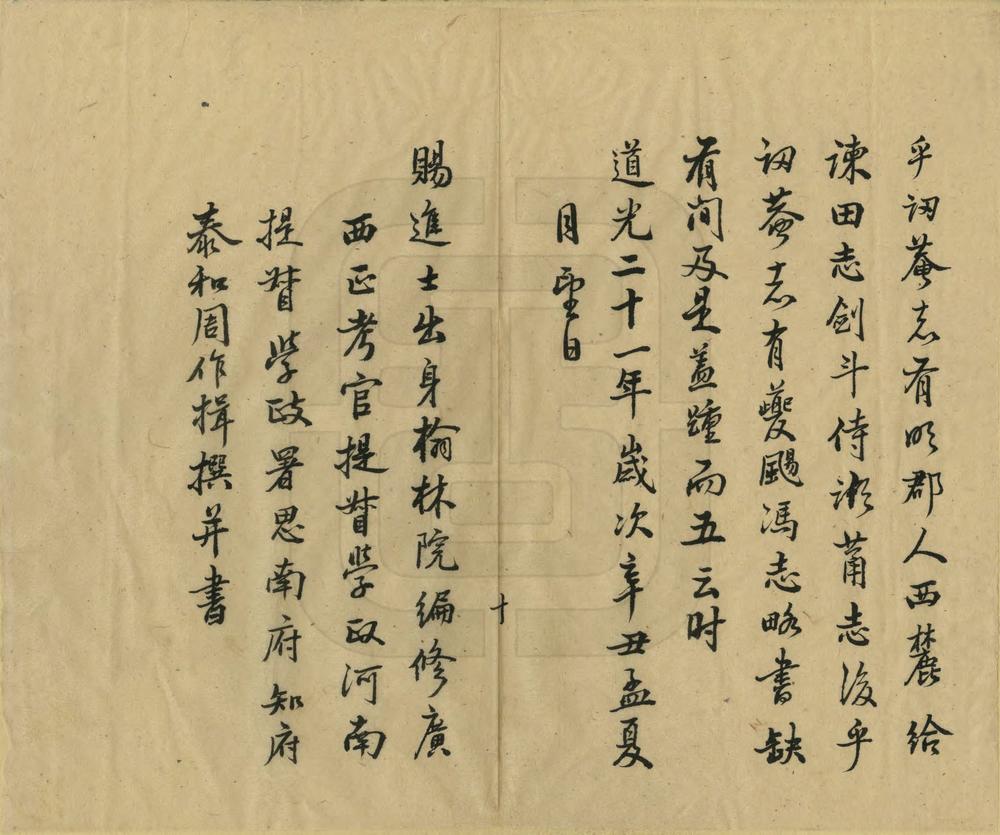 乎訒菴志有明郡人西麓給
諫田志劍斗侍御蕭志後乎
訒菴志有夔颺馮志略書缺
有间及是盖踵而五云时
道光二十一年歲次辛丑孟夏
月望日
賜進士出身翰林院编修廣
西正考官提督學政河南
提督學政署思南府知府
泰和周作揖撰并書
十